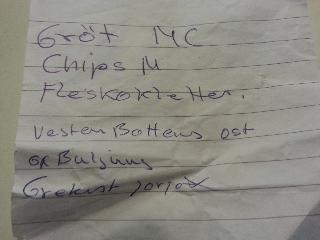 Gröt MC
Chips M
Fleskokletter.
Vesten Bottens ost
ox Buljung
Grekist